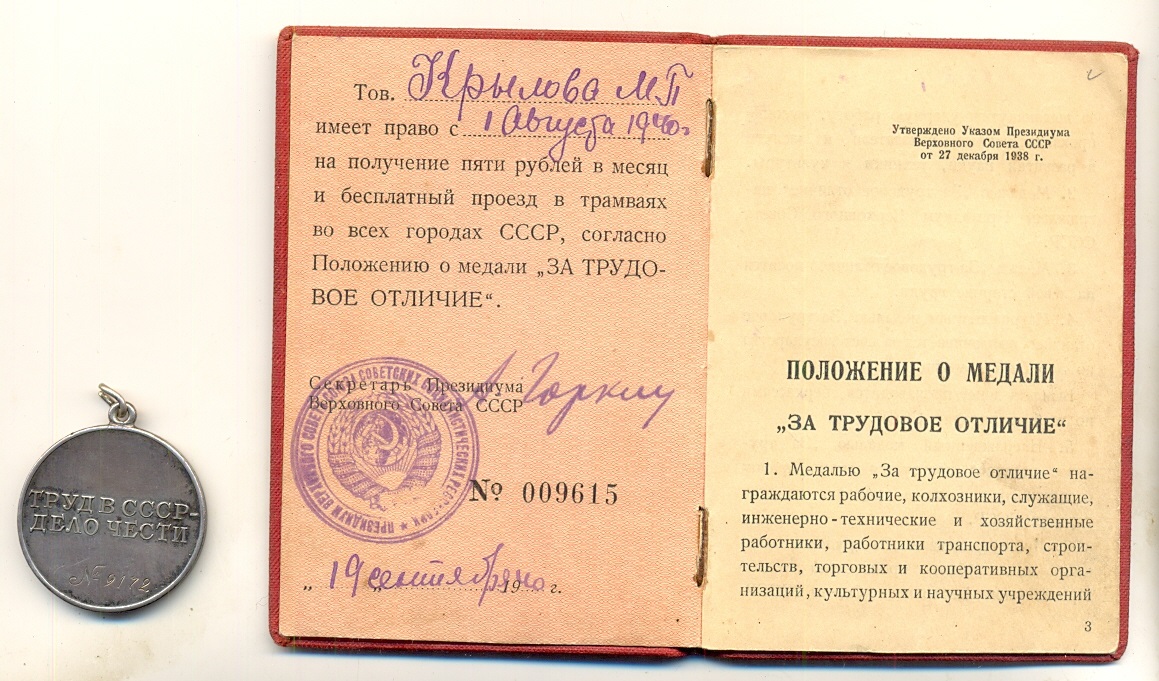 ТРУД В СССР-
ДЕЛО ЧЕСТИ
№ 9172
Тов. Крылова М П
имеет право с 1 Августа 1940 г
на получение пяти рублей в месяц
и бесплатный проезд в трамваях
во всех городах СССР, согласно
Положению о медали „ЗА ТРУДО-
ВОЕ ОТЛИЧИЕ“.
Секретарь Президиума
Верховного Совета СССР
А Горкин
ПРЕЗИДИУМ ВЕРХОВНОГО СОВЕТА СОЮЗА СОВЕТСКИХ СОЦИАЛИСТИЧЕСКИХ РЕСПУБЛИК
№ 009615
„ 19 „ сентября 1940 г.
Утверждено Указом Президиума
Верховного Совета СССР
от 27 декабря 1938 г.
ПОЛОЖЕНИЕ О МЕДАЛИ
„ЗА ТРУДОВОЕ ОТЛИЧИЕ“
1. Медалью „За трудовое отличие“ на-
граждаются рабочие, колхозники, служащие,
инженерно-технические и хозяйственные
работники, работники транспорта, строи-
тельств, торговых и кооперативных орга-
низаций, культурных и научных учреждений
3